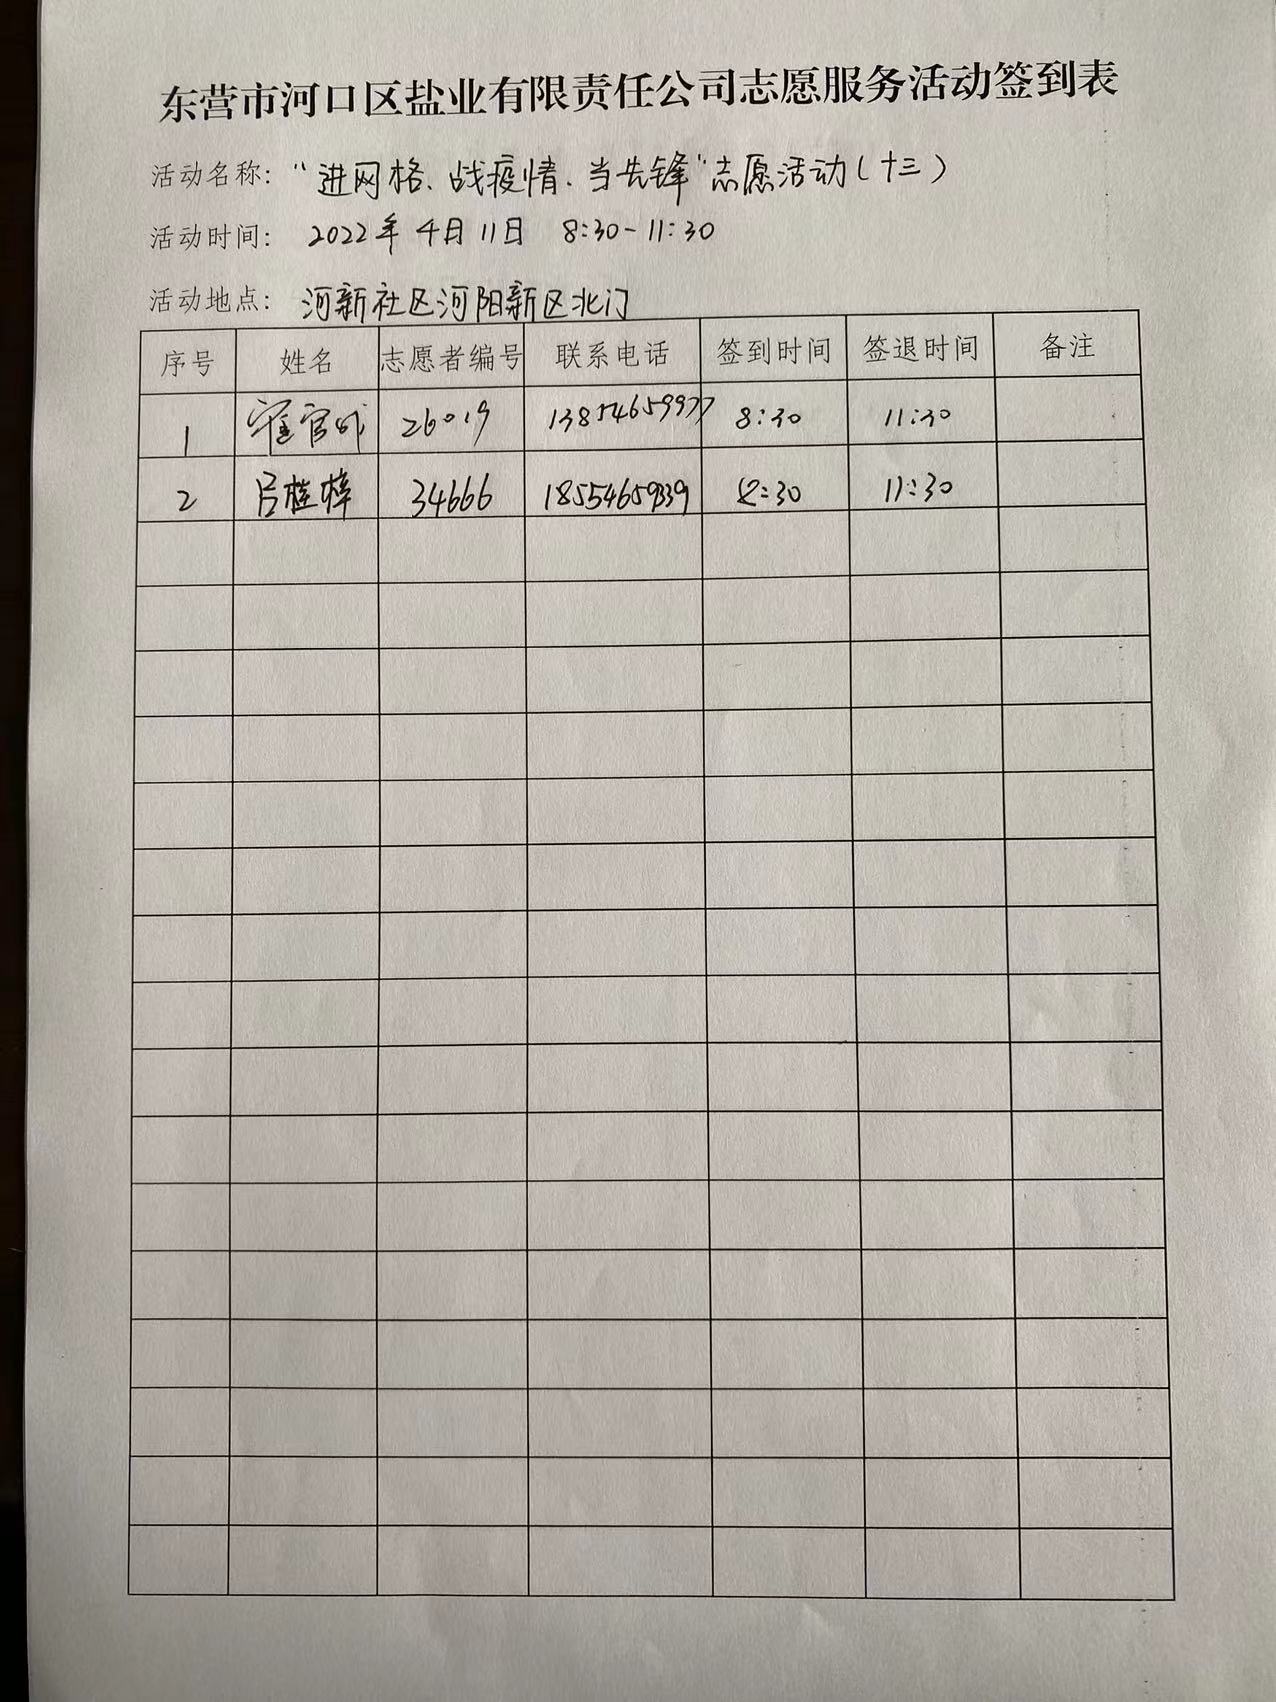 东营市河口区盐业有限责任公司志愿服务活动签到表
活动名称：“进网格、战疫情、当先锋”志愿活动（十三）
活动时间： 2022年4月11日 8:30-11:30
活动地点： 河新社区河阳新区北门
序号 姓名 志愿者编号 联系电话 签到时间 签退时间 备注
1 26019 13854659977 8:30 11:30
2 吕桂梓 34666 18554659839 8:30 11:30